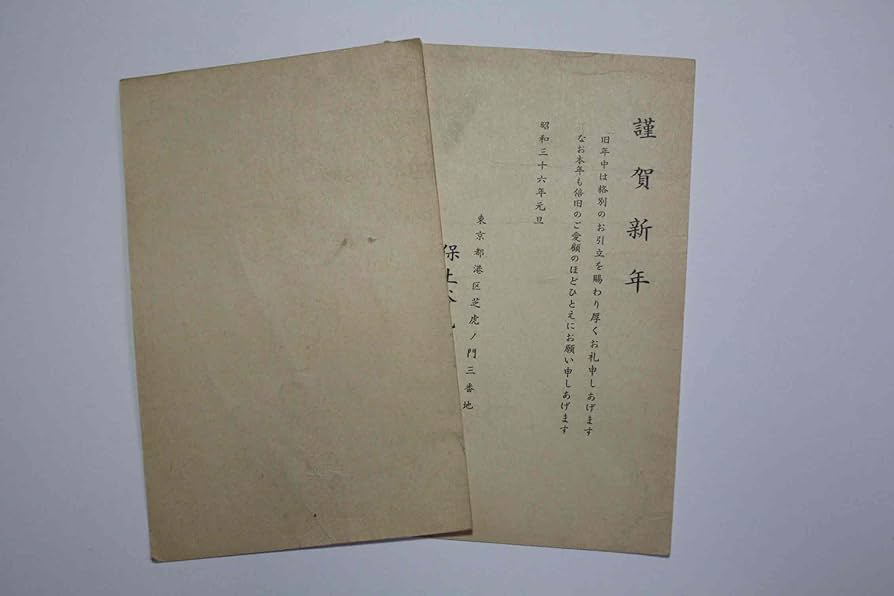 謹賀新年
旧年中は格別のお引立を賜わり厚くお礼申しあげます
なお本年も倍旧のご愛顧のほどひとえにお願い申しあげます
昭和三十六年元旦
東京都港区芝虎ノ門三番地
保土谷